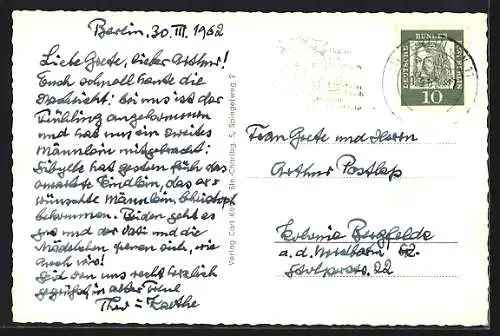 Berlin, 30. III. 1962
Liebe Grete, lieber Arthur!
Euch schnell heute die
Nachricht: bei uns ist der
Frühling angekommen
und hat uns ein zweites
Männlein mitgebracht:
Sibylle hat gestern früh das
erwartete Kindlein, das er=
wünschte Männlein, Christoph
bekommen. Beiden geht es
gut und der Vati und die
Mädelchen freuen sich, wie
auch wir!
Seid von uns recht herzlich
gegrüßt, in alter Treue
Theo u. Käthe
Verlag Carl Bln.-Charltbg. 5, Spiegelweg 7
DEUTSCHE BUNDESPOST BERLIN
10
Frau Grete und Herrn
Arthur
Kolonie Bergfelde
a. d.
22